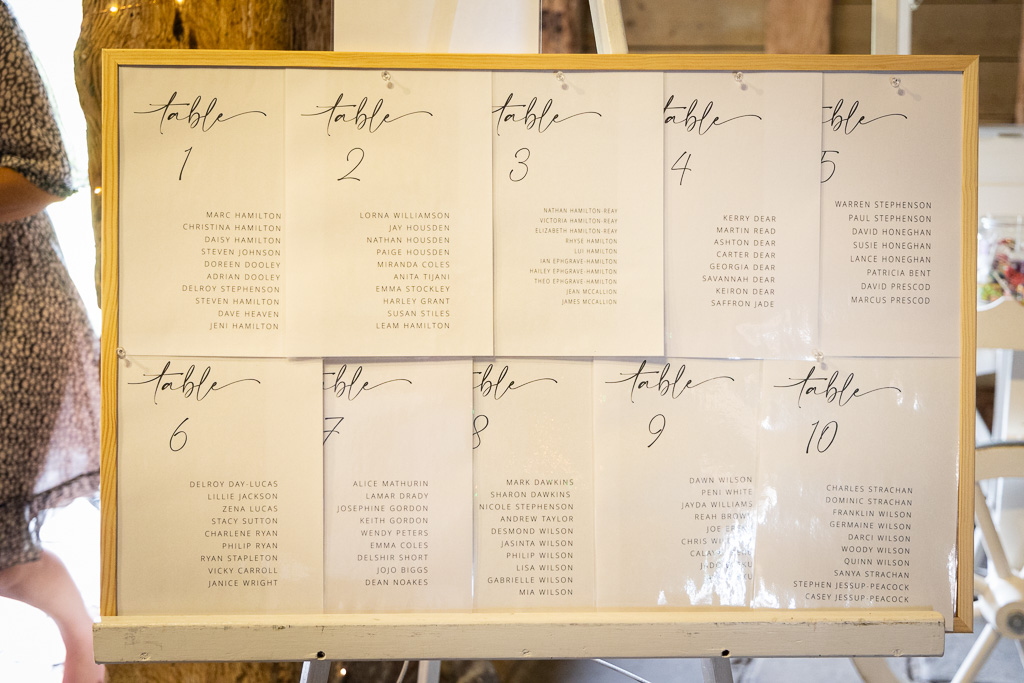 table
1
MARC HAMILTON
CHRISTINA HAMILTON
DAISY HAMILTON
STEVEN JOHNSON
DOREEN DOOLEY
ADRIAN DOOLEY
DELROY STEPHENSON
STEVEN HAMILTON
DAVE HEAVEN
JENI HAMILTON
table
2
LORNA WILLIAMSON
JAY HOUSDEN
NATHAN HOUSDEN
PAIGE HOUSDEN
MIRANDA COLES
ANITA TIJANI
EMMA STOCKLEY
HARLEY GRANT
SUSAN STILES
LEAM HAMILTON
table
3
NATHAN HAMILTON-REAY
VICTORIA HAMILTON-REAY
ELIZABETH HAMILTON-REAY
RHYSE HAMILTON
LUI HAMILTON
IAN EPHGRAVE-HAMILTON
HAILEY EPHGRAVE-HAMILTON
THEO EPHGRAVE-HAMILTON
JEAN MCCALLION
JAMES MCCALLION
table
4
KERRY DEAR
MARTIN READ
ASHTON DEAR
CARTER DEAR
GEORGIA DEAR
SAVANNAH DEAR
KEIRON DEAR
SAFFRON JADE
able
5
WARREN STEPHENSON
PAUL STEPHENSON
DAVID HONEGHAN
SUSIE HONEGHAN
LANCE HONEGHAN
PATRICIA BENT
DAVID PRESCOD
MARCUS PRESCOD
table
6
DELROY DAY-LUCAS
LILLIE JACKSON
ZENA LUCAS
STACY SUTTON
CHARLENE RYAN
PHILIP RYAN
RYAN STAPLETON
VICKY CARROLL
JANICE WRIGHT
able
7
ALICE MATHURIN
LAMAR DRADY
JOSEPHINE GORDON
KEITH GORDON
WENDY PETERS
EMMA COLES
DELSHIR SHORT
JOJO BIGGS
DEAN NOAKES
able
8
MARK DAWKINS
SHARON DAWKINS
NICOLE STEPHENSON
ANDREW TAYLOR
DESMOND WILSON
JASINTA WILSON
PHILIP WILSON
LISA WILSON
GABRIELLE WILSON
MIA WILSON
table
9
DAWN WILSON
PENI WHITE
JAYDA WILLIAMS
REAH BROWN
JOE
CHRIS
table
10
CHARLES STRACHAN
DOMINIC STRACHAN
FRANKLIN WILSON
GERMAINE WILSON
DARCI WILSON
WOODY WILSON
QUINN WILSON
SANYA STRACHAN
STEPHEN JESSUP-PEACOCK
CASEY JESSUP-PEACOCK